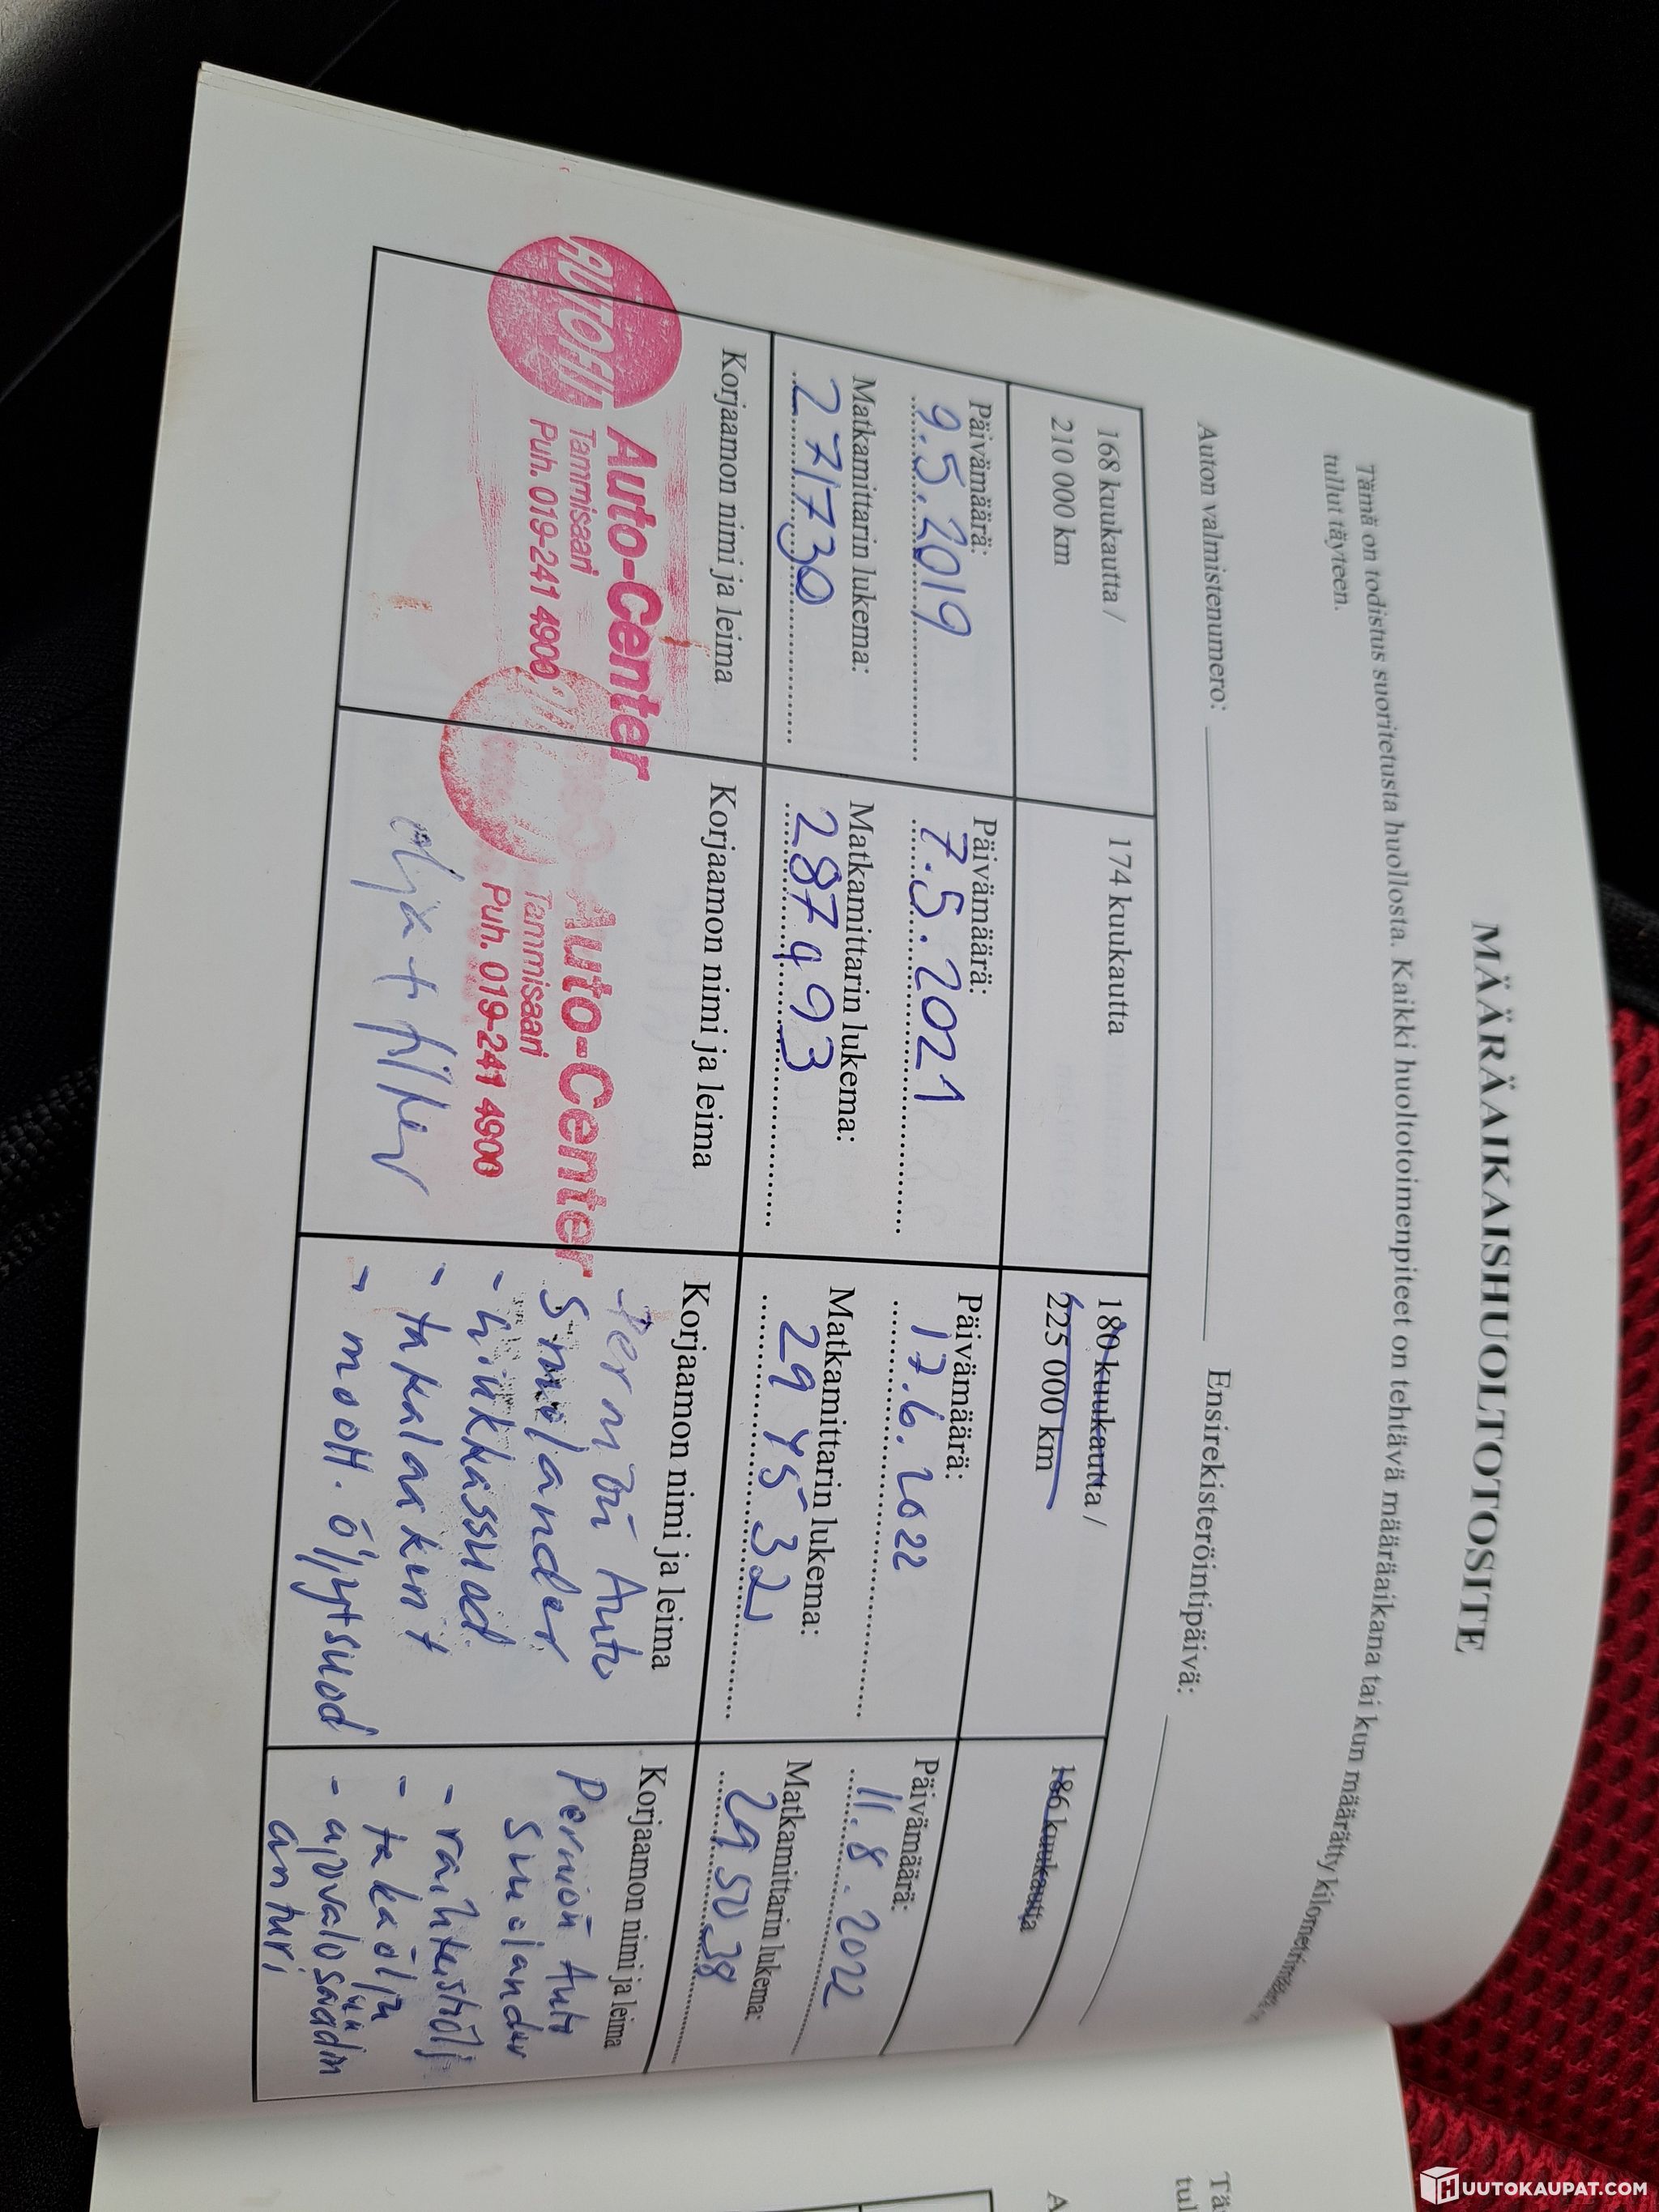 MÄÄRÄAIKAISHUOLTOTOSITE
Tämä on todistus suoritetusta huollosta. Kaikki huoltotoimenpiteet on tehtävä määräaikana tai kun määrätty kilometrimäärä
tullut täyteen.
Auton valmistenumero: Ensirekisteröintipäivä:
168 kuukautta /
210 000 km
Päivämäärä:
9.5.2019
Matkamittarin lukema:
271730
Korjaamon nimi ja leima
AUTOFIT
Auto-Center
Tammisaari
Puh. 019-241 4900
174 kuukautta
Päivämäärä:
7.5.2021
Matkamittarin lukema:
287493
Korjaamon nimi ja leima
Auto-Center
Tammisaari
Puh. 019-241 4900
olja + filter
180 kuukautta /
225 000 km
Päivämäärä:
17.6.2022
Matkamittarin lukema:
294532
Korjaamon nimi ja leima
Perniön Auto
Smolander
- hiukkassuod.
- takalaakerit
- moott. öljytsuod
186 kuukautta
Päivämäärä:
11.8.2022
Matkamittarin lukema:
295038
Korjaamon nimi ja leima
Perniön Auto
Smolander
- takaöljy
- ajovalosäädin
anturi
HUUTOKAUPAT.COM